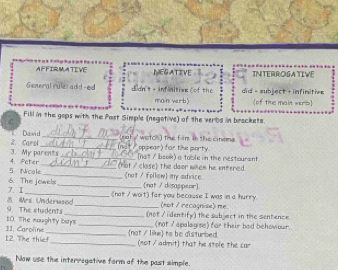 AFFIRMATIVE
General rule: add -ed
NEGATIVE
didn't + infinitive (of the
main verb)
INTERROGATIVE
did + subject + infinitive
(of the main verb)
Fill in the gaps with the Past Simple (negative) of the verbs in brackets.
1. David didn't (not / watch) the film in the cinema.
2. Carol didn't (not / appear) for the party.
3. My parents didn't (not / book) a table in the restaurant.
4. Peter didn't (not / close) the door when he entered.
5. Nicole (not / follow) my advice.
6. The jewels (not / disappear).
7. I (not / wait) for you because I was in a hurry.
8. Mrs. Underwood (not / recognise) me.
9. The students (not / identify) the subject in the sentence.
10. The naughty boys (not / apologise) for their bad behaviour.
11. Caroline (not / like) to be disturbed.
12. The thief (not / admit) that he stole the car.
Now use the interrogative form of the past simple.